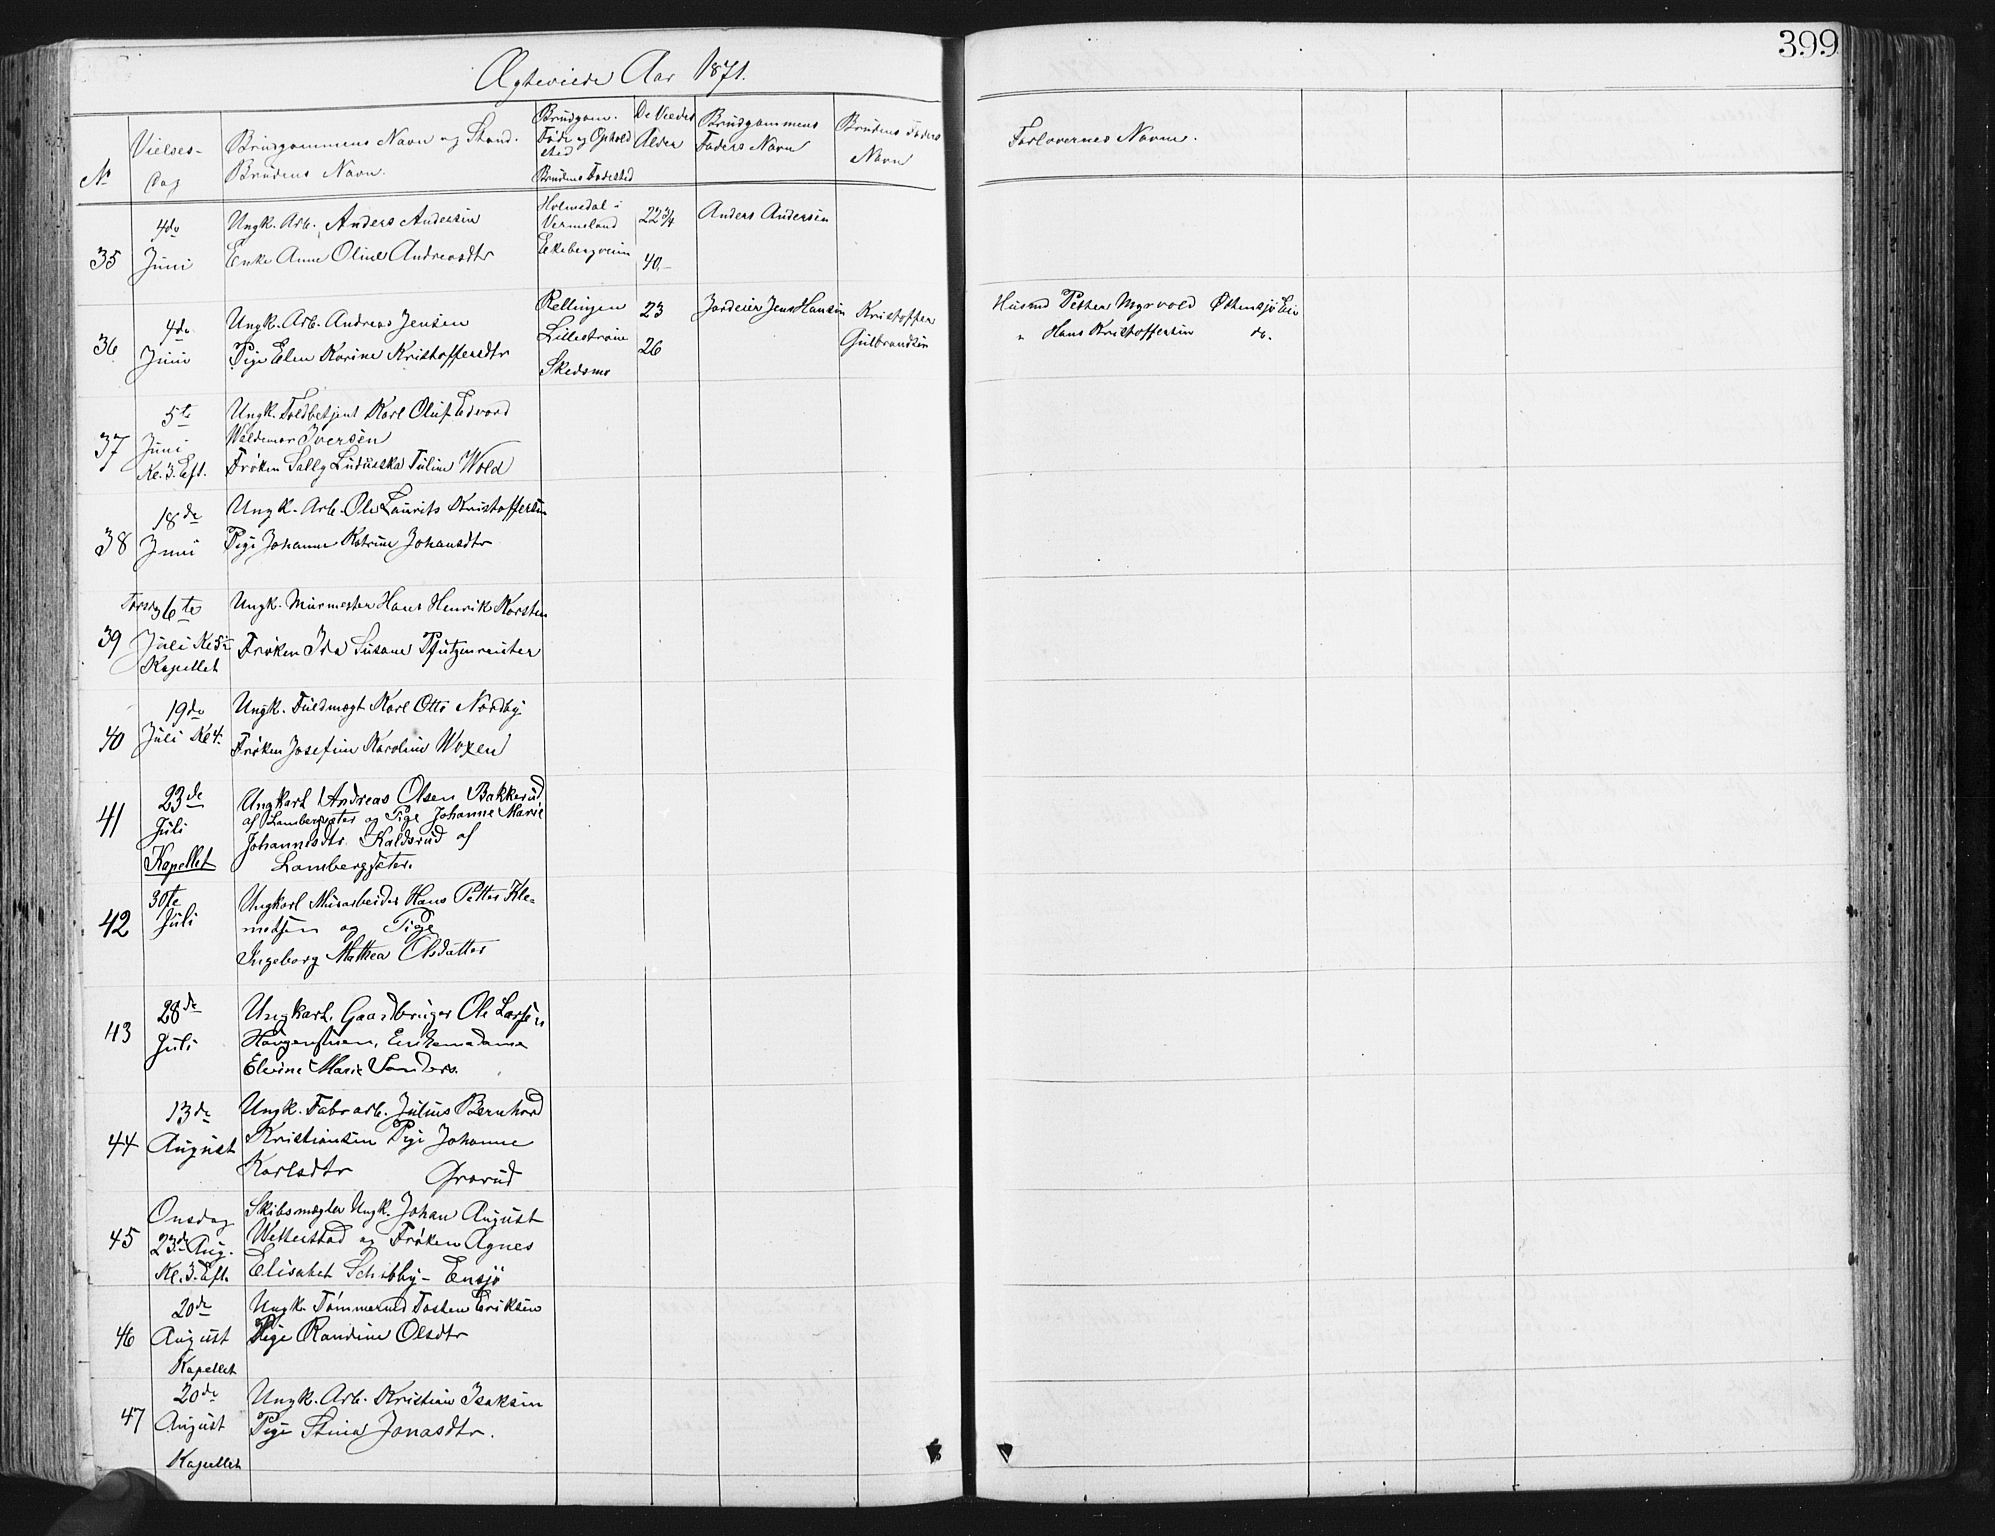 399
Ægteviede Aar 1871.
No
Vielses-
Dag
Brudgommens Navn og Stand.
Brudens Navn.
Brudgom.
Føde og Ophold
sted
Brudens Fødested
De Viedes
Alder
Brudgommens
Faders Navn
Brudens Faders
Navn
Forlovernes Navne.
35
4de
Juni
Ungk. Arb. Anders Andersen
Enke Anne Oline Andreasdtr
Holmedal i
Vermeland
Ekebergveien
22 3/4
40
Anders Andersen
36
4de
Juni
Ungk. Arb. Andreas Jensen
Pige Elen Karine Kristoffersdtr
Rellingen
Lillestrøm
Skedsmo
23
26
Jordeier Jens Hansen
Kristoffer
Gulbrandsen
Husmd Petter Myrvold Østensjø Eie
" Hans Kristoffersen do.
37
5te
Juni
Kl. 3. Eft.
Ungk. Toldbetjent Karl Oluf Edvard
Waldemar Iversen
Frøken Sally Ludviska Tulin Wold
38
18de
Juni
Ungk. Arb. Ole Laurits Kristoffersen
Pige Johanne Katrine Johansdtr
39
Torsdag 6te
Juli Kl 5
Kapellet
Ungk. Murmester Hans Henrik Karsten
Frøken Ida Susane Pfutzenreuter
40
19de
Juli Kl 4.
Ungk. Fuldmægt Karl Otto Nordby
Frøken Josefine Karoline Woxen
41
23de
Juli
Kapellet
Ungkarl Andreas Olsen Bakkerud
af Lambergseter og Pige Johanne Marie
Johannesdtr. Kaldsrud af
Lambergseter.
42
30te
Juli
Ungkarl Murarbeider Hans Petter Kle-
metsen og Pige
Ingeborg Mathea Olsdatter
43
28de
Juli
Ungkarl, Gaardbruger Ole Larsen
Haugenstuen, Enkemadame
Elvine Marie Sanders.
44
13de
August
Ungk. Fabrarb. Julius Bernhard
Kristiansen Pige Johanne
Karlsdtr Grorud
45
Onsdag
23de Aug.
Kl. 3. Eft.
Skibsmægler Ungk. Johan August
Wetterstad og Frøken Agnes
Elisabet Schibby - Ensjø
46
20de
August
Kapellet
Ungk. Tømmermd Tosten Eriksen
Pige Randine Olsdtr
47
20de
August
Kapellet
Ungk. Arb. Kristian Isaksen
Pige Stina Jonasdtr.